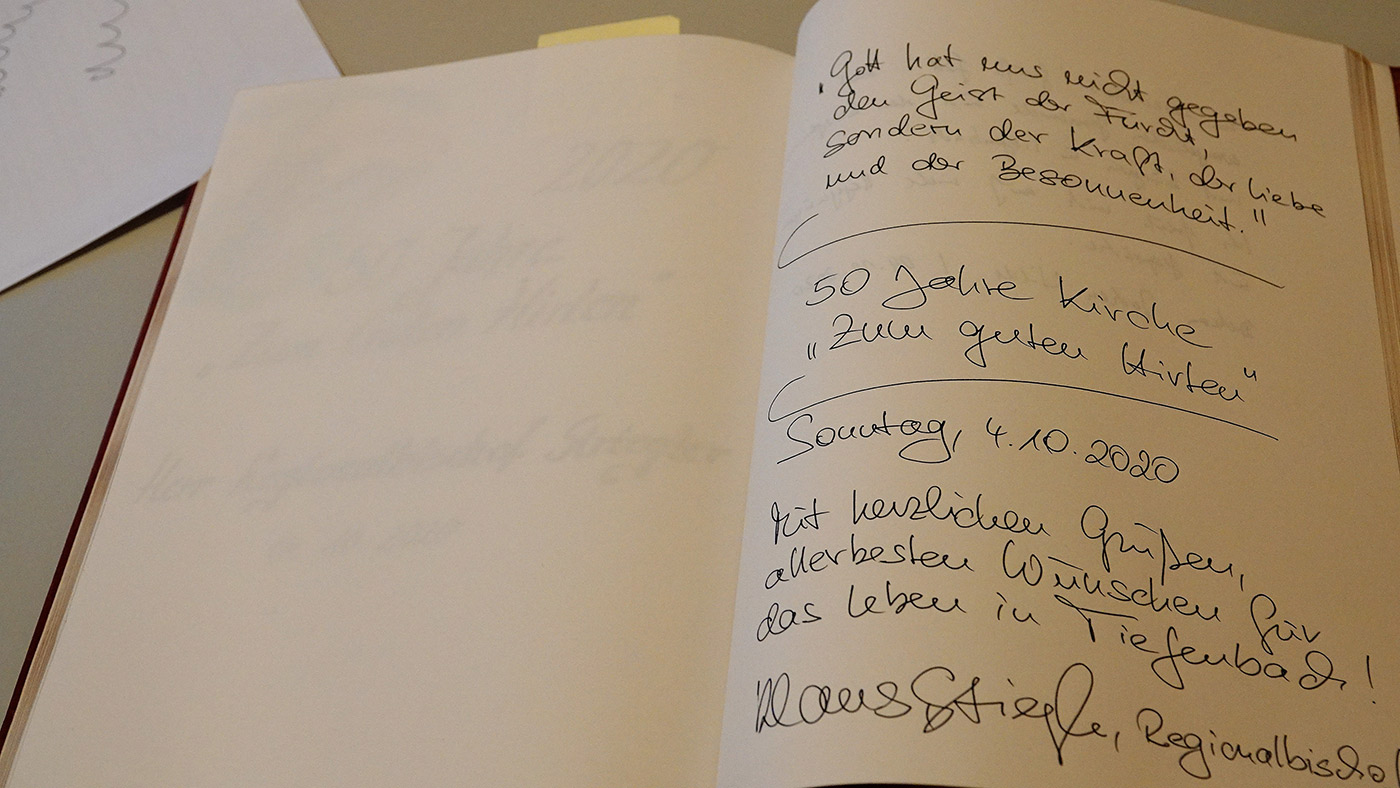 „Gott hat uns nicht gegeben
den Geist der Furcht,
sondern der Kraft, der Liebe
und der Besonnenheit."
50 Jahre Kirche
„Zum guten Hirten"
Sonntag, 4.10.2020
Mit herzlichen Grüßen,
allerbesten Wünschen für
das Leben in Tiefenbach!
Klaus Stiegler, Regionalbischof
2020
50 Jahre
Hirten"